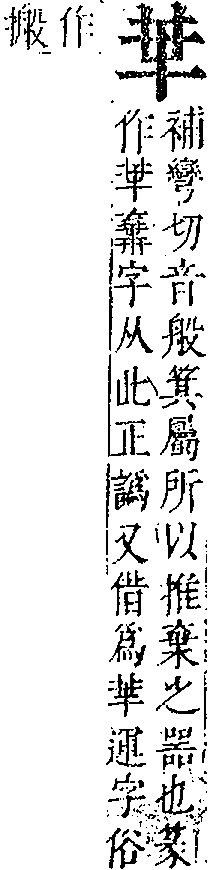 𠦒
補彎切音般箕屬所以推棄之器也篆
作𠦒糞字从此正譌又借爲𠦒運字俗
作搬